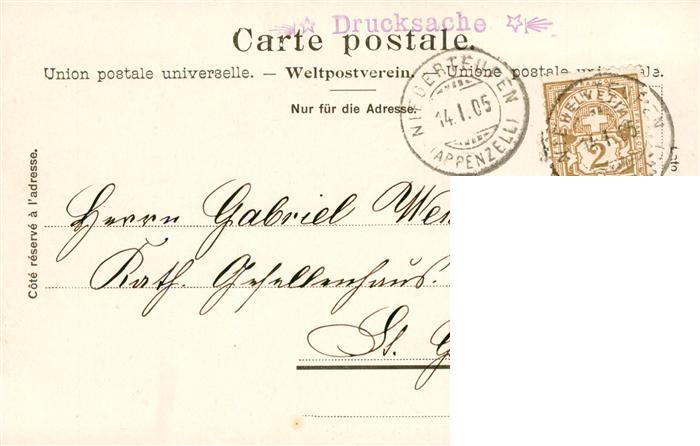 Drucksache
Carte postale.
Union postale universelle. — Weltpostverein. — Unione postale universale.
Nur für die Adresse.
NIEDERTEUFEN
14.I.05
(APPENZELL)
HELVETIA
2
Côté réservé à l'adresse.
Herrn Gabriel
Kath. Gesellenhaus.
St.